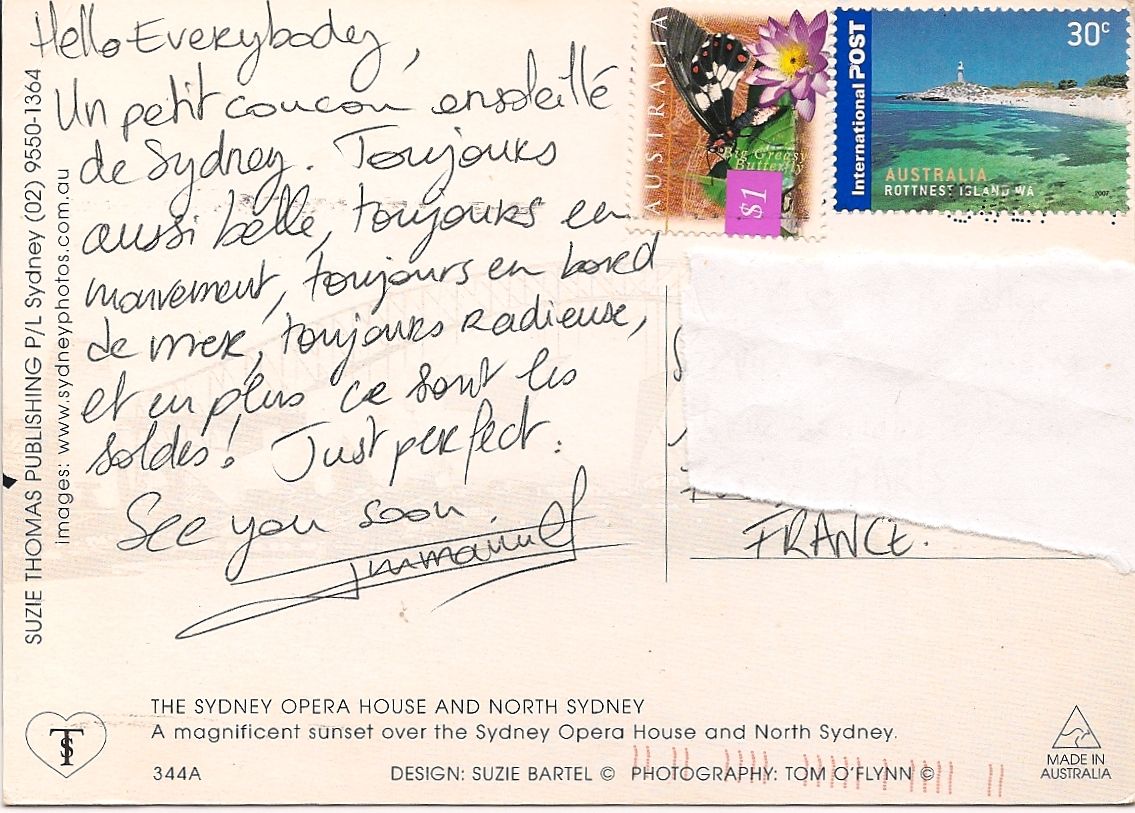 Hello Everybody,
Un petit coucou ensoleillé
de Sydney. Toujours
aussi belle, toujours en
mouvement, toujours en bord
de mer, toujours radieuse,
et en plus ce sont les
soldes! Just perfect.
See you soon.
Emmanuel
FRANCE.
AUSTRALIA
Big Greasy
Butterfly
$1
International POST
30c
AUSTRALIA
ROTTNEST ISLAND WA
2007
SUZIE THOMAS PUBLISHING P/L Sydney (02) 9550-1364
images: www.sydneyphotos.com.au
THE SYDNEY OPERA HOUSE AND NORTH SYDNEY
A magnificent sunset over the Sydney Opera House and North Sydney.
344A
DESIGN: SUZIE BARTEL © PHOTOGRAPHY: TOM O'FLYNN ©
MADE IN
AUSTRALIA